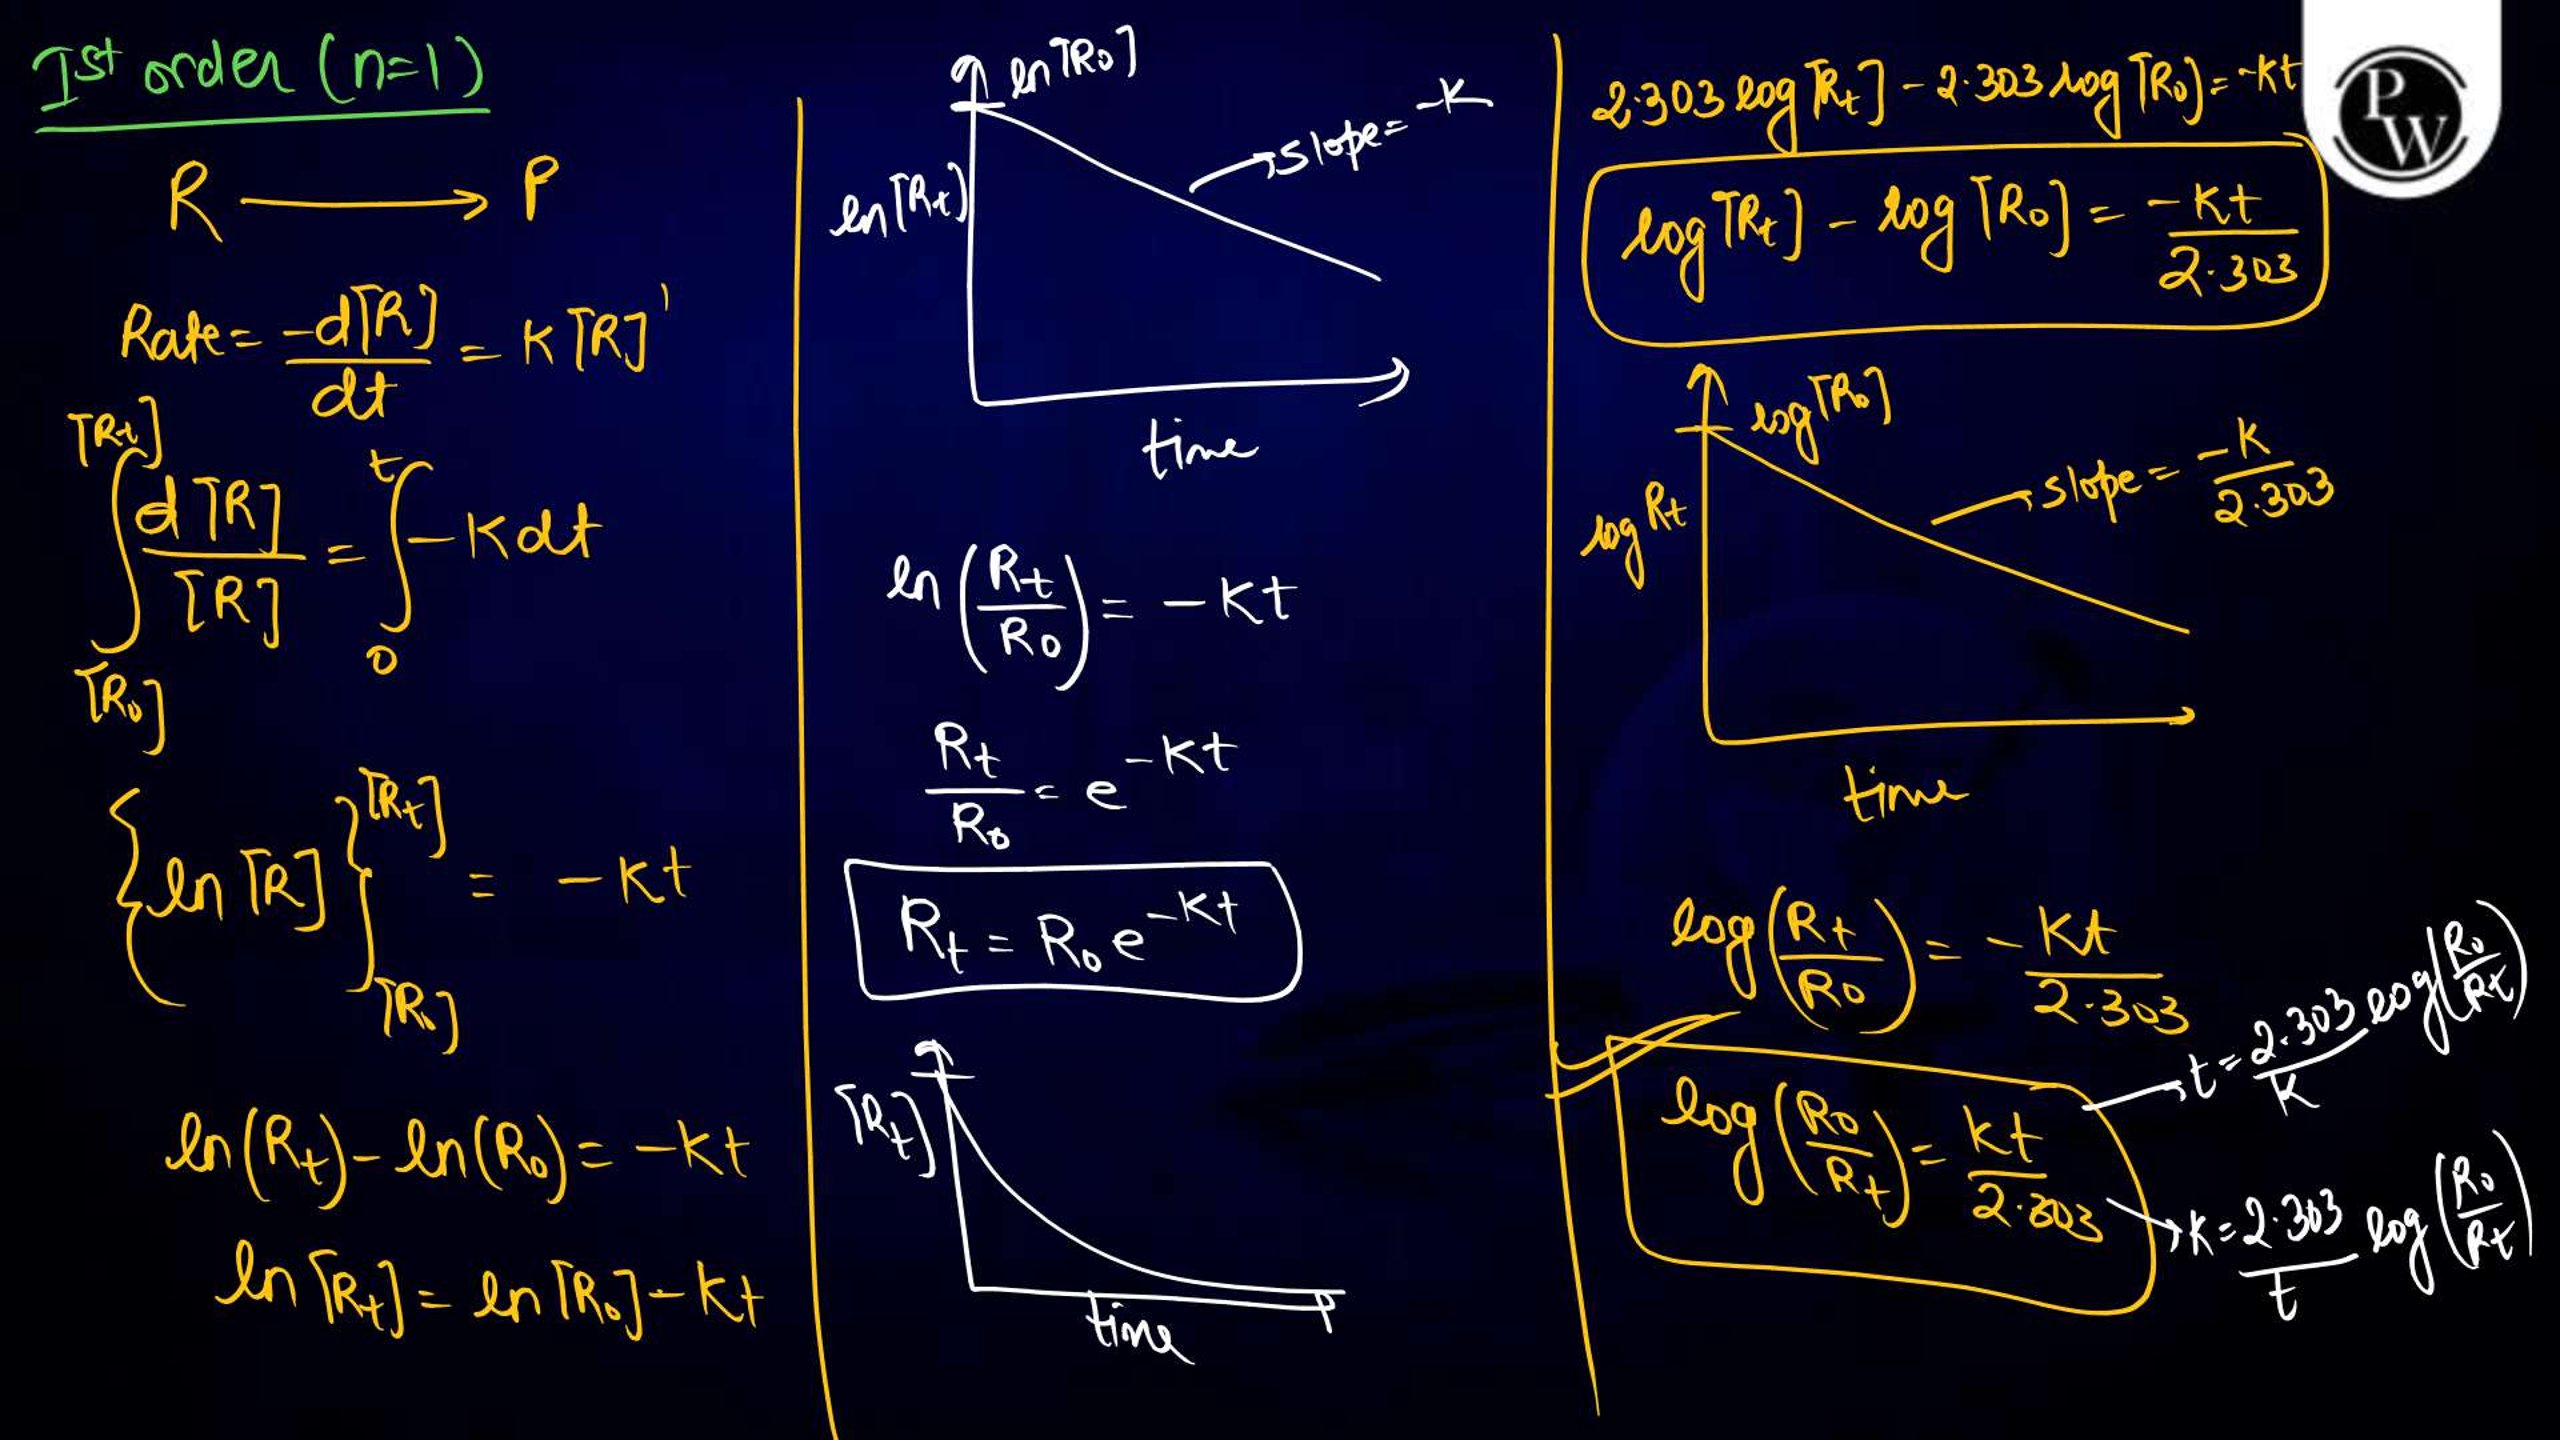 Ist order (n=1)
R ⟶ P
Rate = -d[R]/dt = K[R]¹
∫_[R₀]^[Rt] d[R]/[R] = ∫_0^t -Kdt
{ln[R]}_[R₀]^[Rt] = -Kt
ln(Rt) - ln(R₀) = -Kt
ln[Rt] = ln[R₀] - Kt
ln[R₀]
slope = -K
ln[Rt]
time
ln(Rt/R₀) = -Kt
Rt/R₀ = e^-Kt
Rt = R₀e^-Kt
[Rt]
time
2.303 log[Rt] - 2.303 log[R₀] = -Kt
log[Rt] - log[R₀] = -Kt/2.303
log[R₀]
slope = -K/2.303
log Rt
time
log(Rt/R₀) = -Kt/2.303
t = 2.303/K log(R₀/Rt)
log(R₀/Rt) = Kt/2.303
K = 2.303/t log(R₀/Rt)
PW